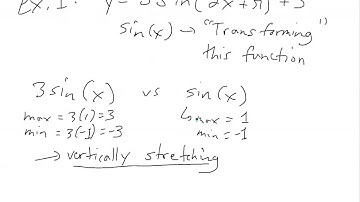 ex. 1: y = 3 sin(2x + π) + 3
sin(x) → "Transforming"
this function
3 sin(x) vs sin(x)
max = 3(1) = 3 ↳ max = 1
min = 3(-1) = -3 min = -1
→ vertically stretching